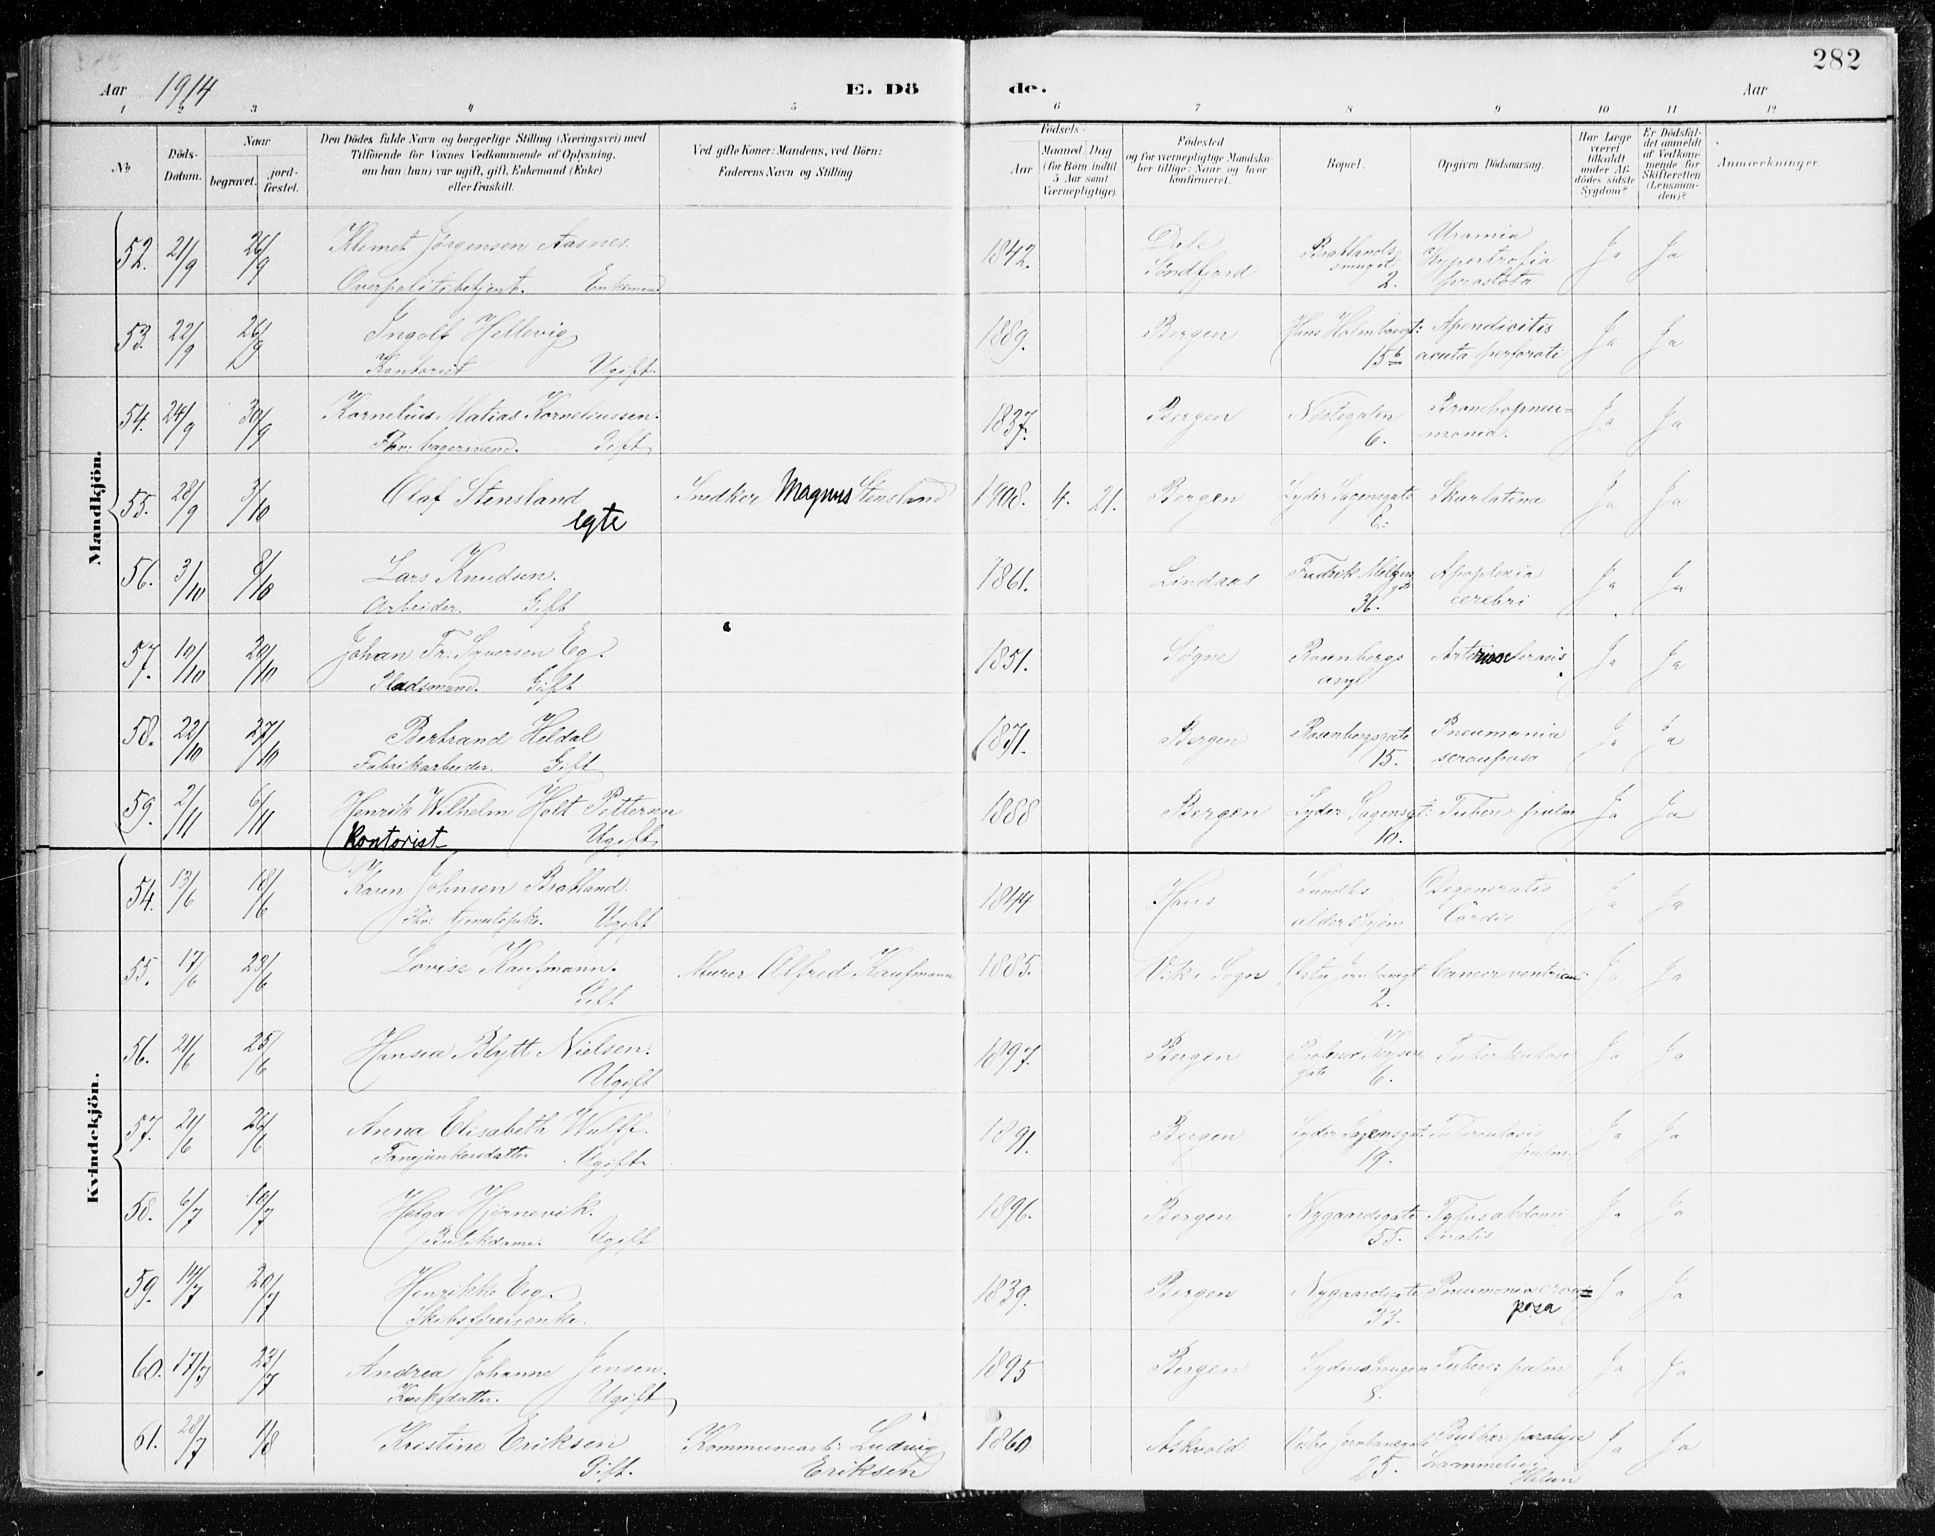 282
Aar 1914 E. Dö de. Aar
1 2 3 4 5 6 7 8 9 10 11 12
No
Döds-Datum.
Naar begravet. jordfæstet.
Den Dödes fulde Navn og borgerlige Stilling (Næringsvei) med
Tilföiende for Voxnes Vedkommende af Oplysning,
om han (hun) var ugift, gift, Enkemand (Enke)
eller fraskilt.
Ved gifte Koner: Mandens, ved Börn:
Faderens Navn og Stilling
Födsels-
Aar Maaned. Dag
(for Börn indtil 5 Aar samt Værnepligtige).
Födested
og for værnepligtige Mandskaber tillige: Naar og hvor konfirmeret.
Bopæl.
Opgiven Dödsaarsag.
Har Læge været tilkaldt under Afdödes sidste Sygdom?
Er Dödsfaldet anmeldt af Vedkommende for Skifteretten (Lensmanden)?
Anmærkninger.
Mandkjön.
52. 21/9 26/9 Klemet Jørgensen Aasnes. 1842. Dale Søndfjord Bratlandssmuget 2. Uramia Hypertrofia prostata Ja Ja
Overpolitibetjent. Enkemand
53. 22/9 26/9 Ingolt Hellevig 1889. Bergen Hans Holmboesgt: 15b Apendicitis acuta perforati Ja Ja
Kontorist Ugift
54. 24/9 30/9 Kornelius Matias Korneliussen. 1837. Bergen Nøstegaten 6. Bronchopneumonia. Ja Ja
Fhv: bagersvend. Gift
55. 28/9 3/10 Olaf Stensland Snedker Magnus Stensland 1908. 4. 21. Bergen Lyder Sagensgate Skarlatina Ja Ja
egte
56. 3/10 8/10 Lars Knudsen. 1861. Lindaas Fredrik Meltzersgt 36. Apoplexia cerebri Ja Ja
Arbeider. Gift
57. 10/10 20/10 Johan Fr: Syversen Eg. 1851. Søgne Rosenbergs asyl Arteriosclerosis Ja Ja
Pladsmand. Gift
58. 22/10 27/10 Bertrand Heldal 1871. Bergen Rosenbergsgate 15. Pneumonia Ja Ja
Fabrikarbeider. Gift
59. 2/11 6/11 Henrik Wilhelm Holt Pettersen 1888 Bergen Lyder Sagensgt: 10. Tuberc pulm Ja Ja
Kontorist Ugift
Kvindekjön.
54. 13/6 18/6 Karen Johnsen Bratland. 1844 Haus Sundts aldershjem Degeneratio Cordis Ja Ja
Fhv: Ugift
55. 17/6 23/6 Lovise Kaufmann. Murer Alfred Kaufmann 1885. Vik i Sogn Østre Jernbanegt 2. Cancer ventriculi Ja Ja
Gift
56. 21/6 25/6 Hansia Blytt Nielsen. 1897. Bergen Professor Keysers gate 6. Tuberkulose Ja Ja
Ugift
57. 21/6 26/6 Anna Elisabeth Wulff. 1891. Bergen Lyder Sagensgt 19. Tuberculosis pulm. Ja Ja
Fanejunkersdatter Ugift
58. 6/7 10/7 Helga Hjørnevik. 1896. Bergen Nygaardsgate 55. Tyfus abdominalis Ja Ja
Butikdame. Ugift
59. 14/7 20/7 Henrikke Eeg. 1839. Bergen Nygaardsgate 33. Pneumonia crouposa Ja Ja
Skibsførerenke.
60. 17/7 23/7 Andrea Johanne Jensen. 1895 Bergen Sydneshaugen 8. Tuberc: pulm Ja Ja
Kuskdatter. Ugift
61. 28/7 1/8 Kristine Eriksen Kommunearb: Ludvig Eriksen 1860 Askvold Vestre Jernbanegate 25. Bulbær paralyse Ja Ja
Gift.